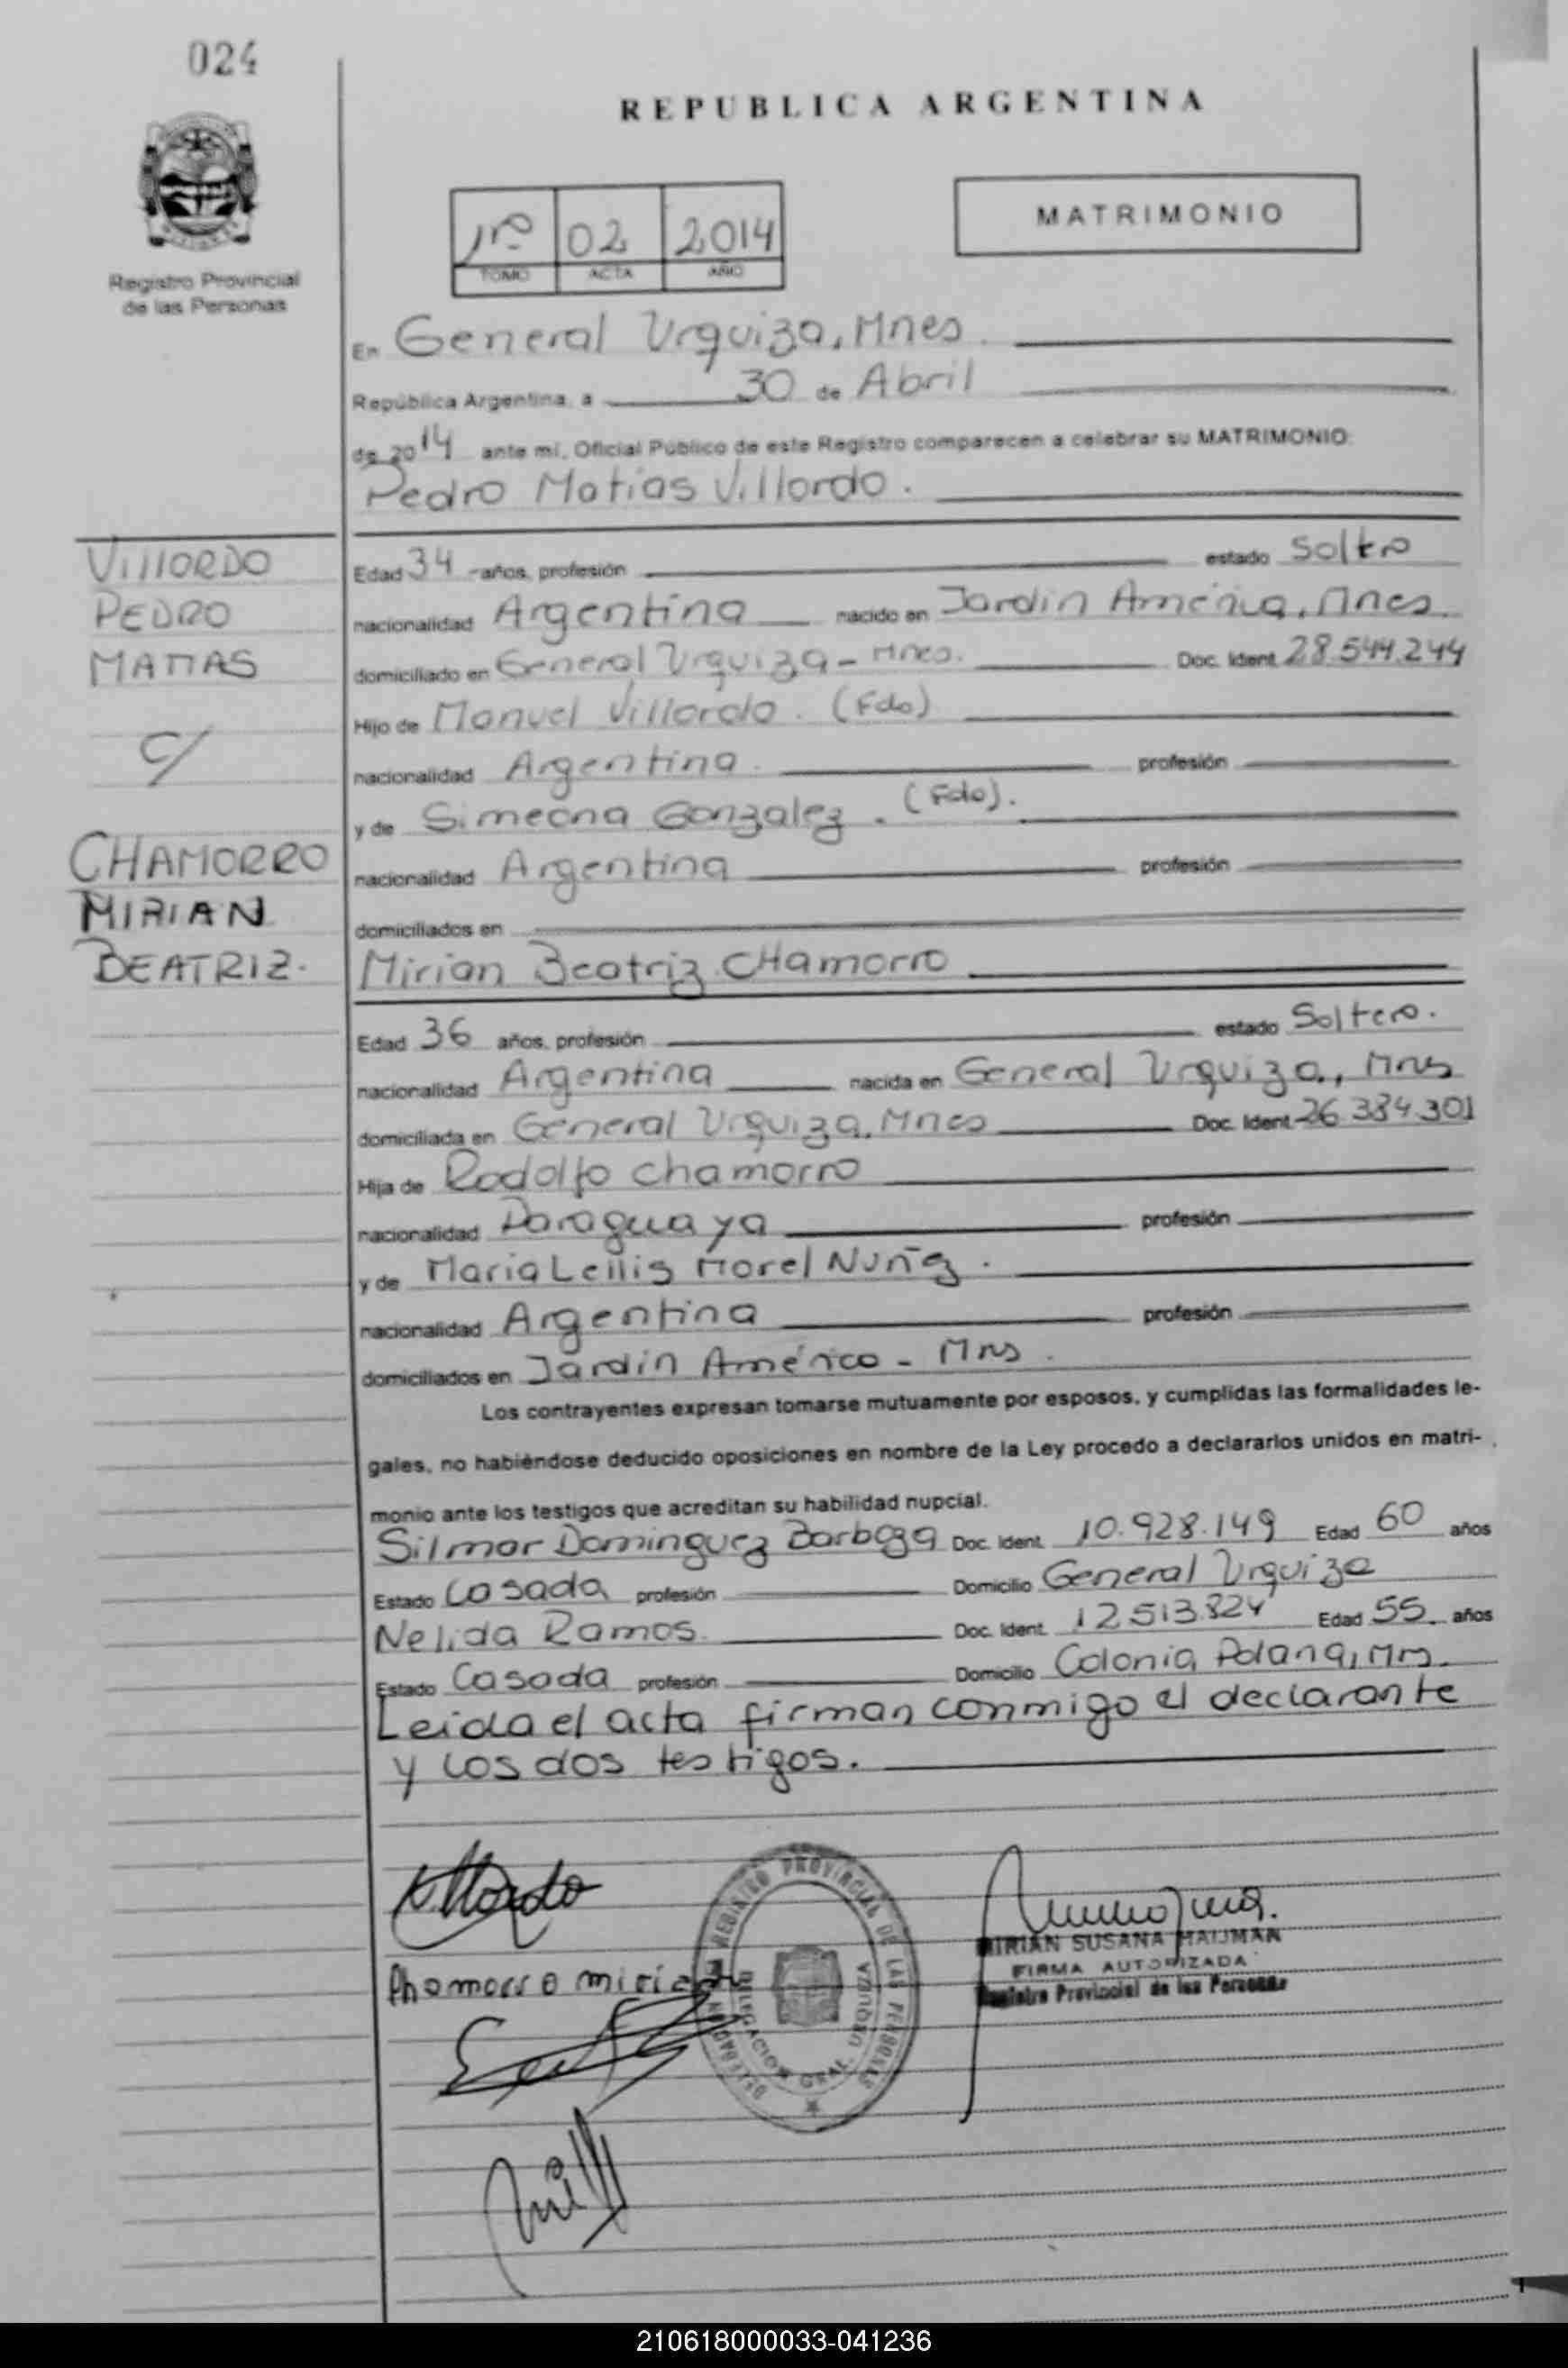 024
REPUBLICA ARGENTINA
Registro Provincial
de las Personas
1ro 02 2014
TOMO ACTA AÑO
MATRIMONIO
En General Urquiza, Mnes.
República Argentina, a 30 de Abril
de 2014 ante mí, Oficial Público de este Registro comparecen a celebrar su MATRIMONIO:
Pedro Matias Villordo.
VILLORDO
PEDRO
MATIAS
C/
CHAMORRO
MIRIAN
BEATRIZ.
Edad 34 años, profesión estado Soltro
nacionalidad Argentina nacido en Jardin América, Mnes.
domiciliado en General Urquiza - Mnes. Doc. Ident. 28.544.244
Hijo de Manuel Villordo. (Fdo)
nacionalidad Argentina. profesión
y de Simeona Gonzalez. (Fdo).
nacionalidad Argentina profesión
domiciliados en
Mirian Beatriz CHamorro
Edad 36 años, profesión estado Soltero.
nacionalidad Argentina nacida en General Urquiza, Mns
domiciliada en General Urquiza, Mnes Doc. Ident. 26.384.301
Hija de Rodolfo Chamorro
nacionalidad Paraguaya profesión
y de Maria Morel
nacionalidad Argentina profesión
domiciliados en Jardin América - Mns.
Los contrayentes expresan tomarse mutuamente por esposos, y cumplidas las formalidades le-
gales, no habiéndose deducido oposiciones en nombre de la Ley procedo a declararlos unidos en matri-
monio ante los testigos que acreditan su habilidad nupcial.
Silmar Dominguez Barboza Doc. Ident. 10.928.149 Edad 60 años
Estado Casada profesión Domicilio General Urquiza
Nelida Ramos. Doc. Ident. 12.513.824 Edad 55 años
Estado Casada profesión Domicilio Colonia Polana, Mns.
Leida el acta firman conmigo el declarante
y los dos testigos.
Villordo
Chamorro Mirian
REGISTRO PROVINCIAL DE LAS PERSONAS
DELEGACION GRAL. URQUIZA
MIRIAN SUSANA HAUMAN
FIRMA AUTORIZADA
Registro Provincial de las Personas
1
210618000033-041236